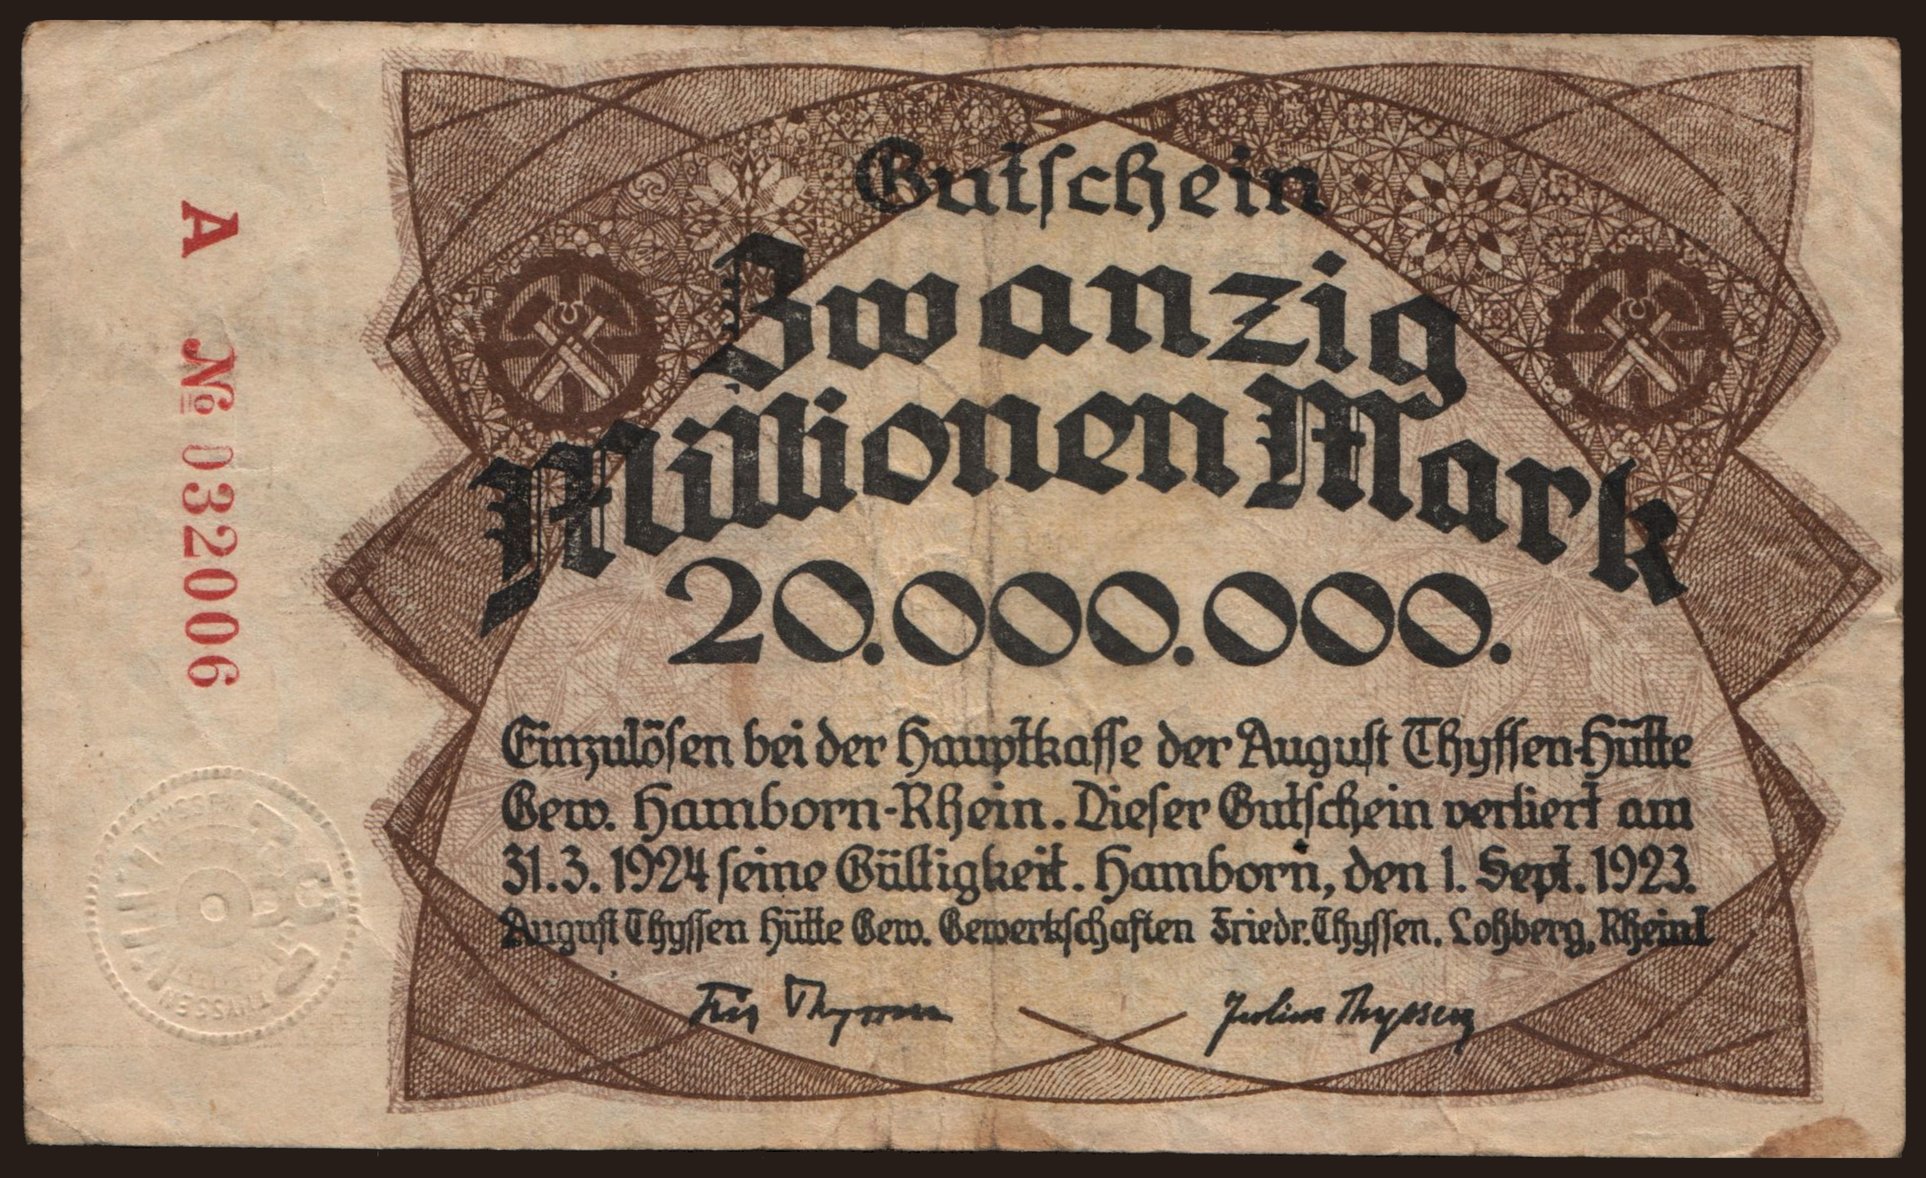 Gutschein
Zwanzig
Millionen Mark
20.000.000.
Einzulösen bei der Hauptkasse der August Thyssen-Hütte
Gew. Hamborn-Rhein. Dieser Gutschein verliert am
31.3.1924 seine Gültigkeit. Hamborn, den 1. Sept. 1923.
August Thyssen Hütte Gew. Gewerkschaften Friedr. Thyssen, Lohberg, Rhein I
Fritz Thyssen
Julius Thyssen
A № 032006
THYSSEN